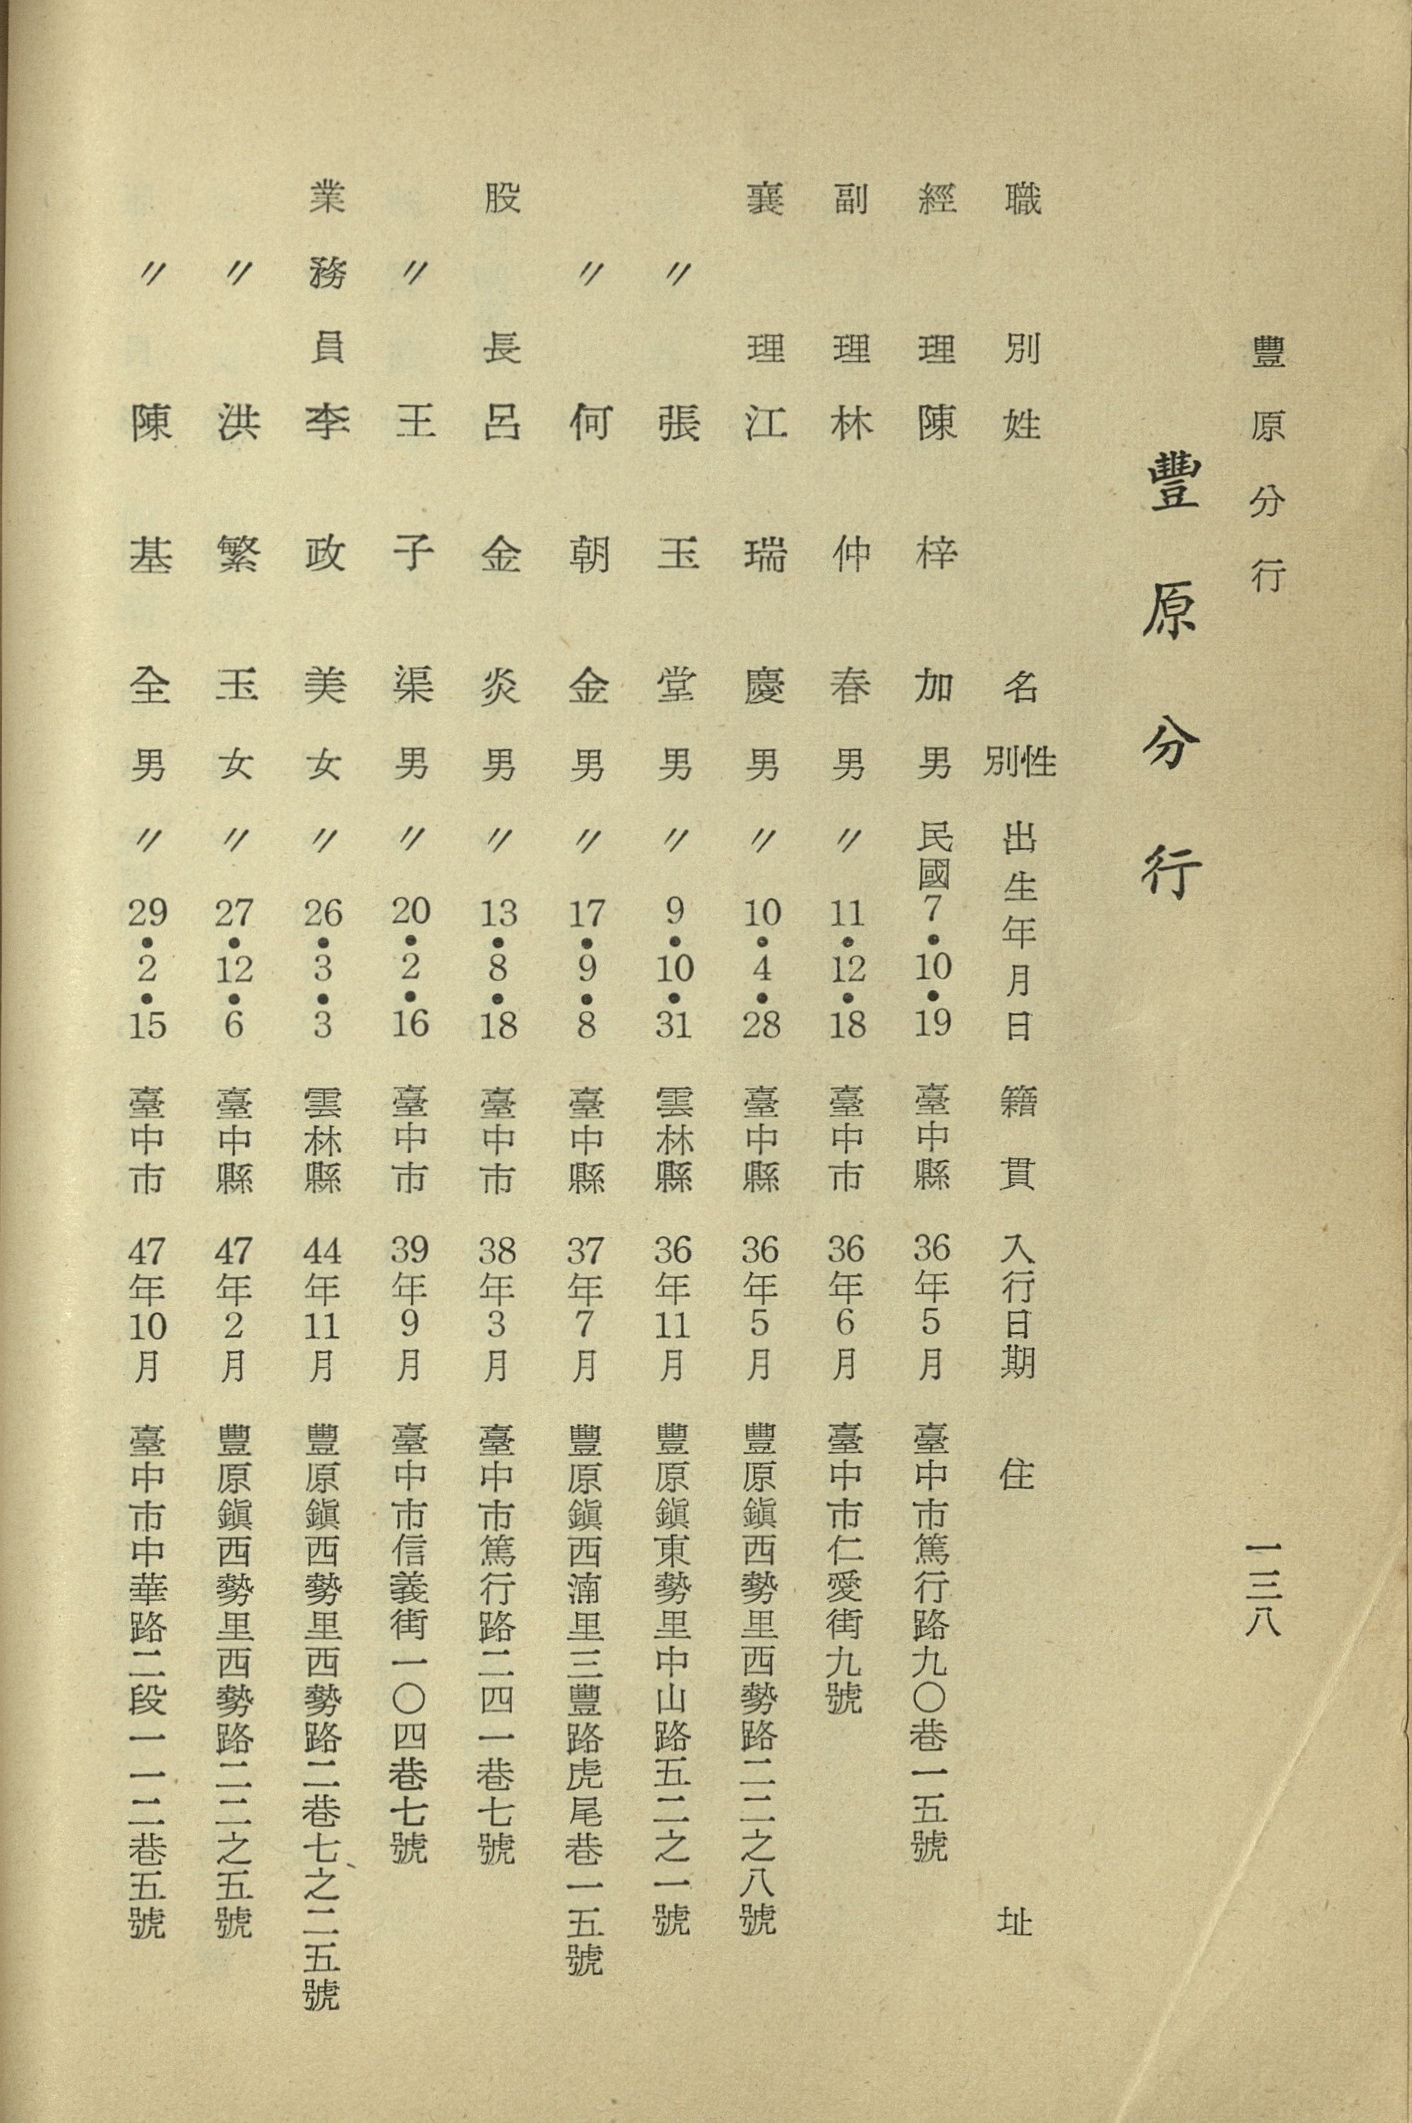 豐原分行
一三八
豐原分行
職別 姓名 性別 出生年月日 籍貫 入行日期 住址
經理 陳梓加 男 民國7•10•19 臺中縣 36年5月 臺中市篤行路九〇巷一五號
副理 林仲春 男 〃11•12•18 臺中市 36年6月 臺中市仁愛街九號
襄理 江瑞慶 男 〃10•4•28 臺中縣 36年5月 豐原鎭西勢里西勢路二二之八號
〃 張玉堂 男 〃9•10•31 雲林縣 36年11月 豐原鎭東勢里中山路五二之一號
〃 何朝金 男 〃17•9•8 臺中縣 37年7月 豐原鎭西湳里三豐路虎尾巷一五號
股長 呂金炎 男 〃13•8•18 臺中市 38年3月 臺中市篤行路二四一巷七號
〃 王子渠 男 〃20•2•16 臺中市 39年9月 臺中市信義街一〇四巷七號
業務員 李政美 女 〃26•3•3 雲林縣 44年11月 豐原鎭西勢里西勢路二巷七之二五號
〃 洪繁玉 女 〃27•12•6 臺中縣 47年2月 豐原鎭西勢里西勢路二二之五號
〃 陳基全 男 〃29•2•15 臺中市 47年10月 臺中市中華路二段一一二巷五號